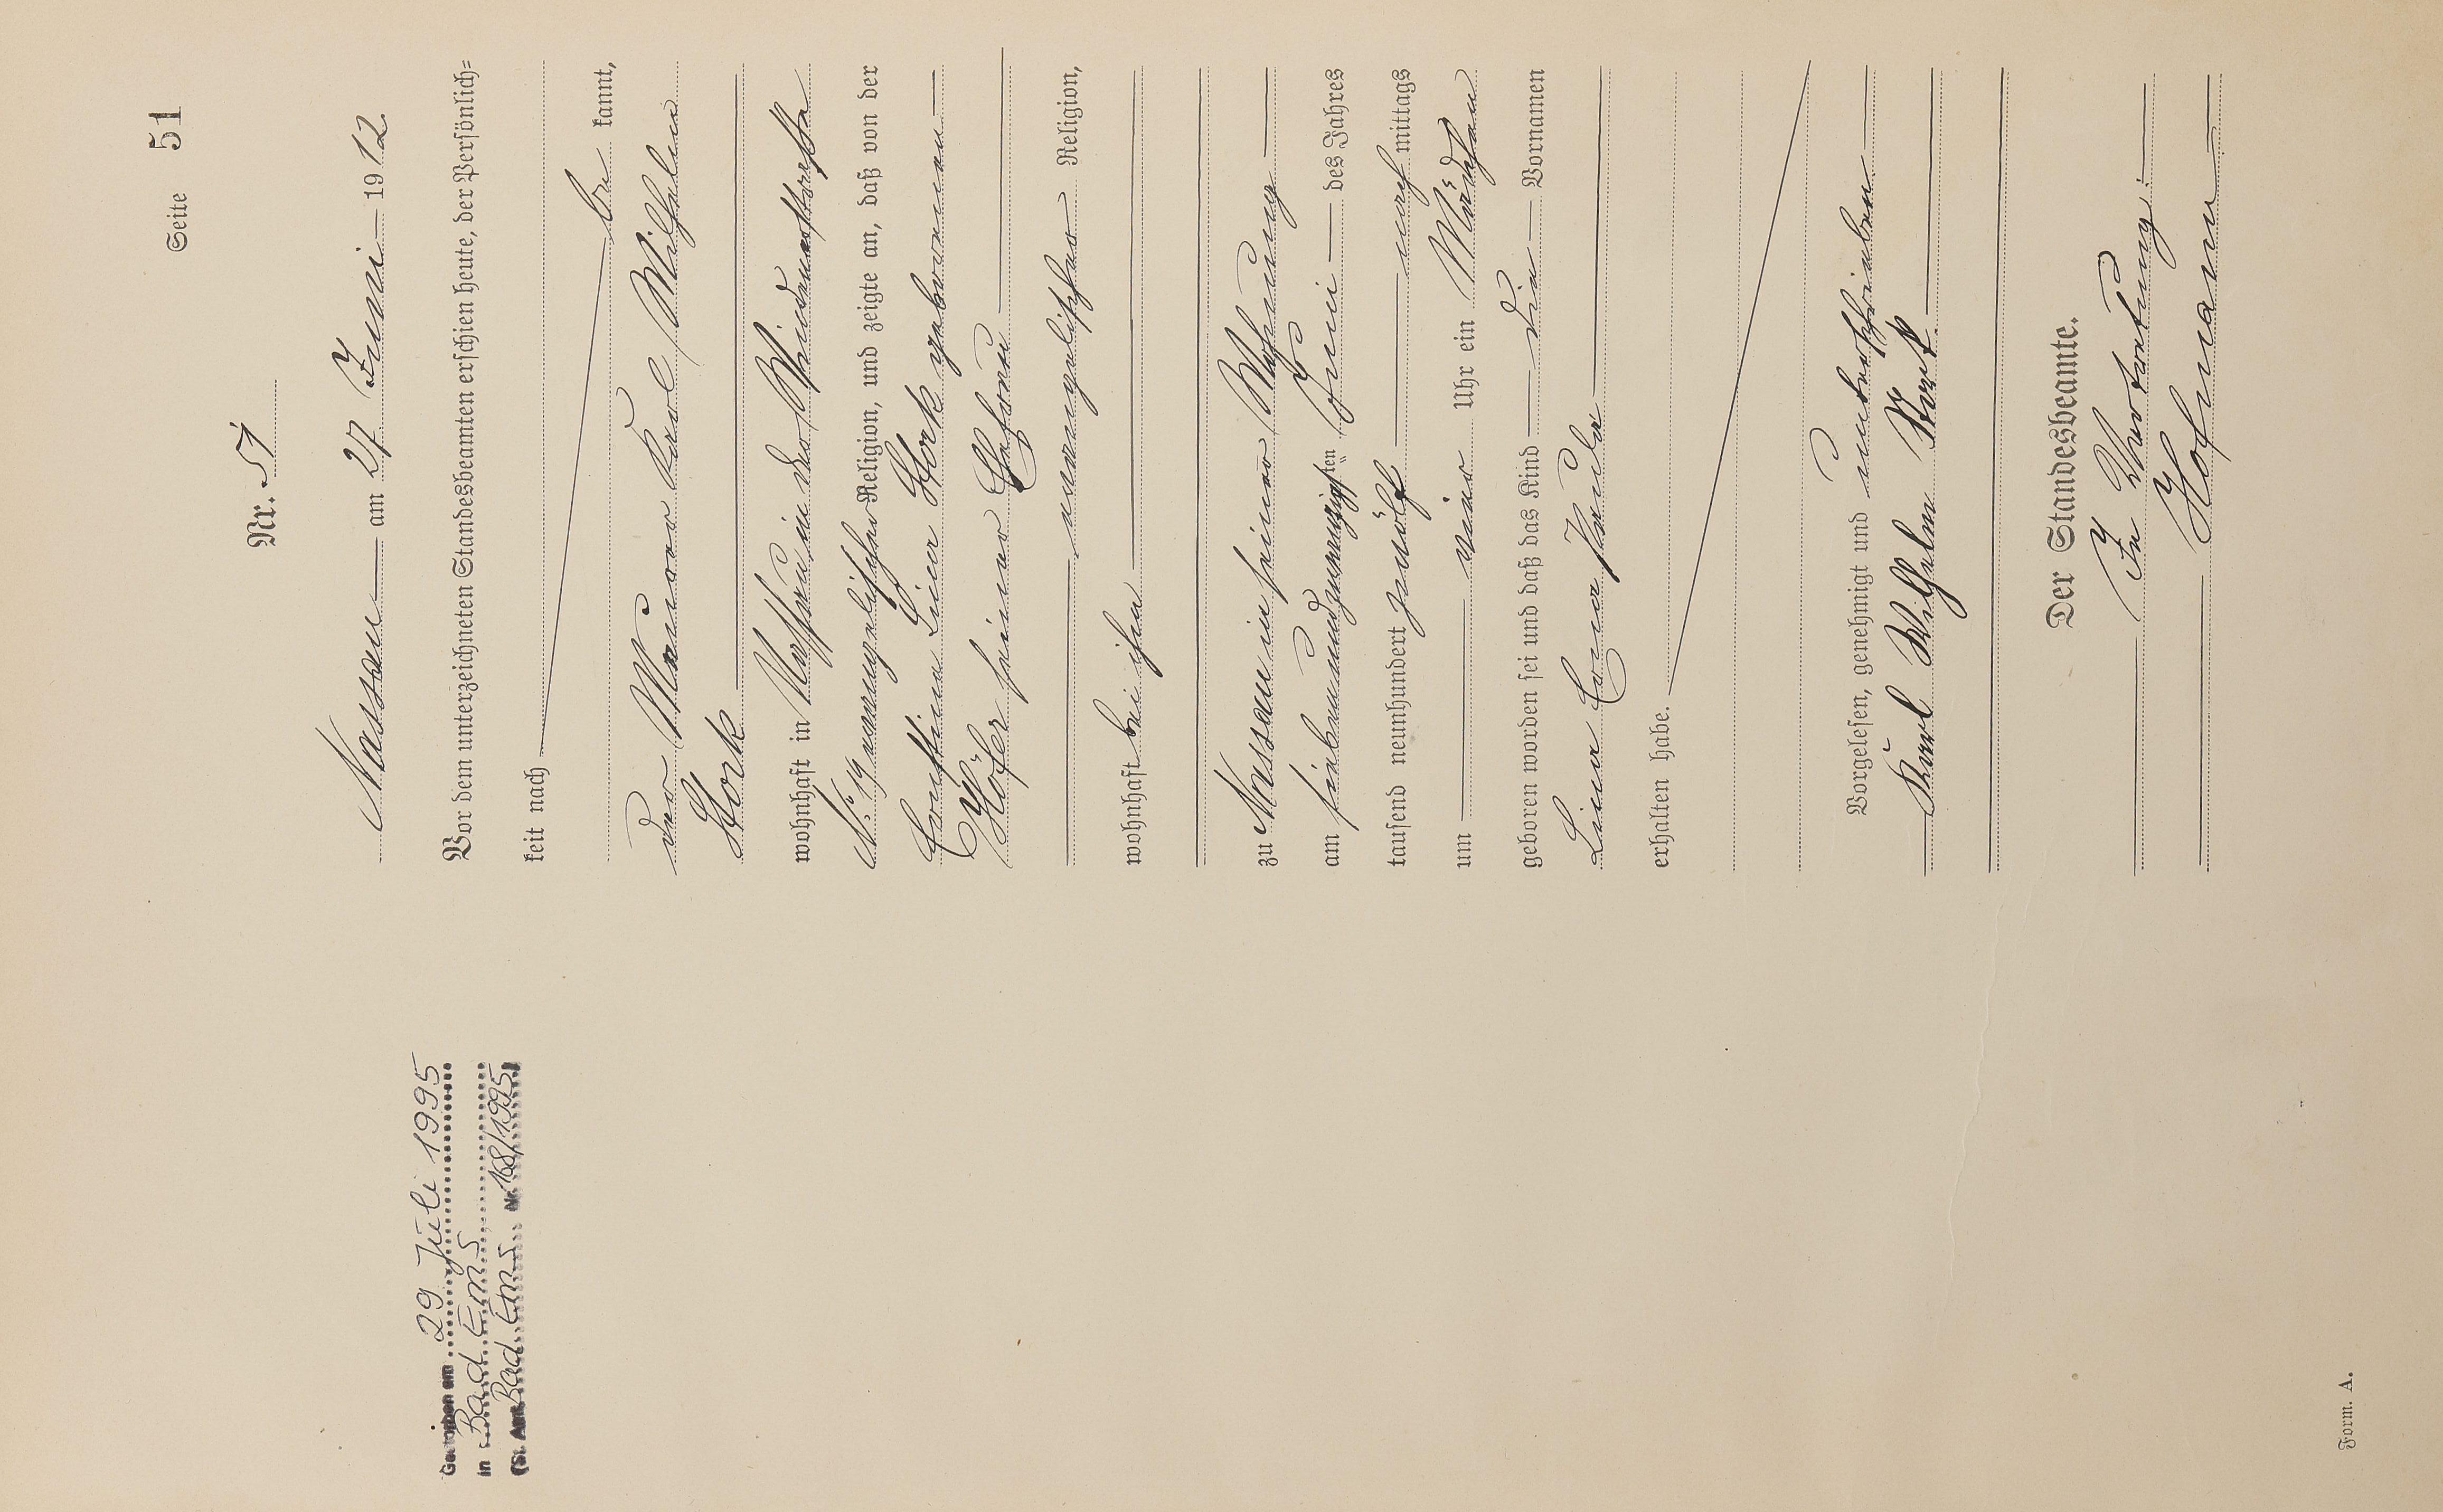 Seite 51
Nr. 51
Nassau am 27 Juni 1912.
Vor dem unterzeichneten Standesbeamten erschien heute, der Persönlich=
keit nach be kannt,
der Maurer Karl Wilhelm
Stork
wohnhaft in Nassau in der Windenerstraße
No. 19 evangelischer Religion, und zeigte an, daß von der
Stork geborenen
Höfer seiner Ehefrau
evangelischer Religion,
wohnhaft bei ihm
zu Nassau in seiner Wohnung
am siebenundzwanzigsten Juni des Jahres
tausend neunhundert zwölf nach mittags
um vier Uhr ein Mädchen
geboren worden sei und daß das Kind die Vornamen
Lina Erna Paula
erhalten habe.
Vorgelesen, genehmigt und unterschrieben
Karl Wilhelm Stork
Der Standesbeamte.
In Vertretung:
Hofmann
Gestorben am 29 Juli 1995
in Bad Ems
(St. Amt Bad Ems Nr. 168/1995)
Form. A.